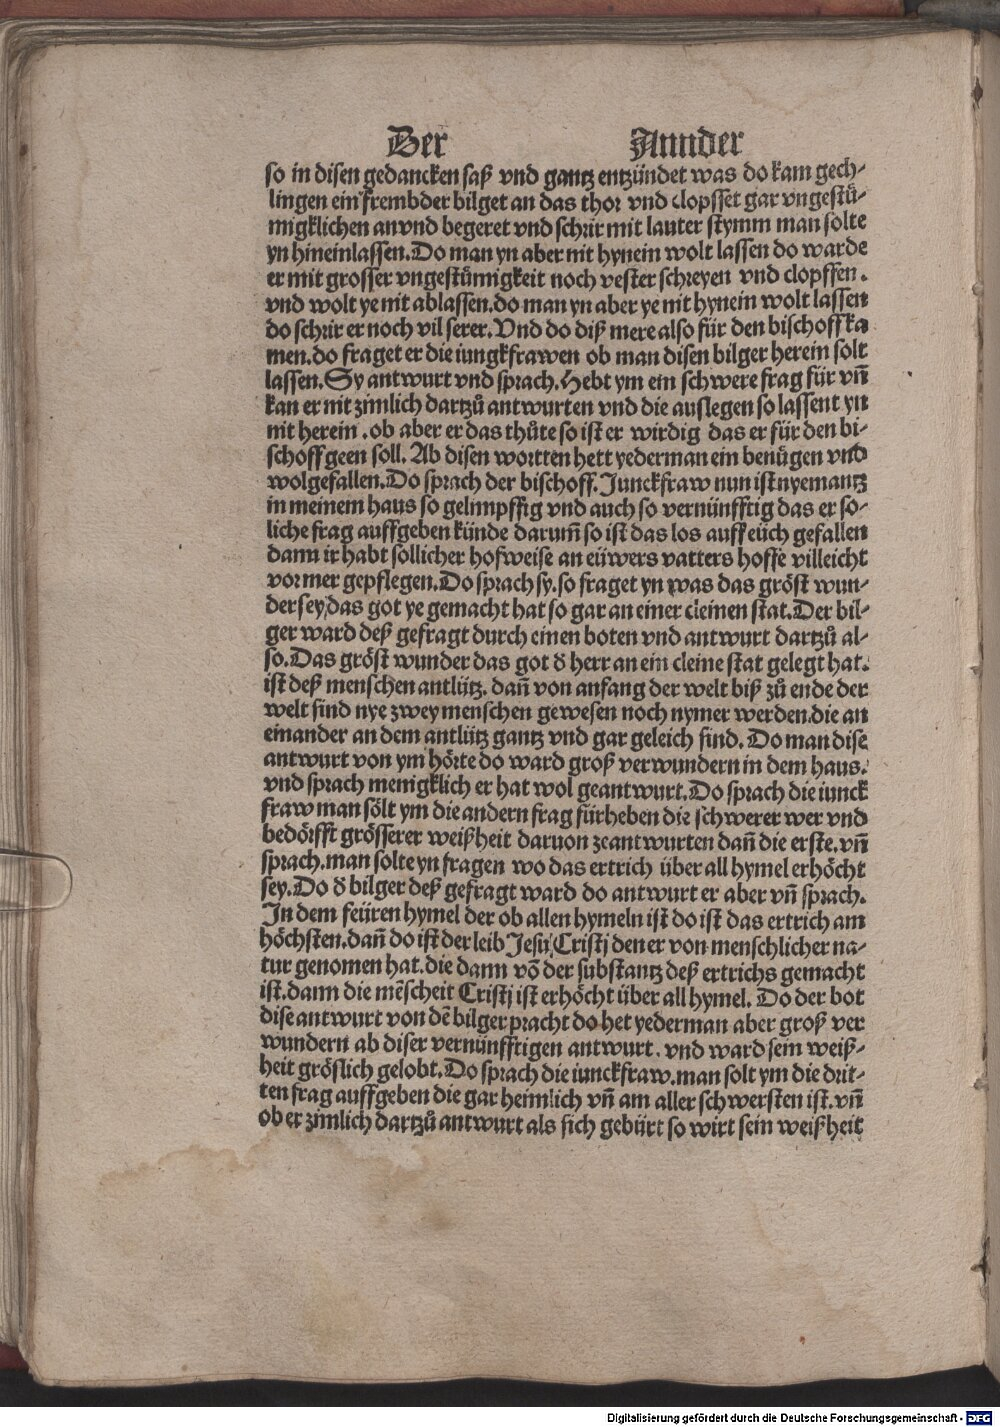 Der Annder
so in disen gedancken saß vnd gantz entzündet was do kam gech⸗
lingen ein frembder bilget an das thor vnd clopffet gar vngestü⸗
migklichen an vnd begeret vnd schrir mit lauter stymm man solte
yn hineinlassen. Do man yn aber nit hynein wolt lassen do warde
er mit grosser vngestümigkeit noch vester schreyen vnd clopffen.
vnd wolt ye nit ablassen. do man yn aber ye nit hynein wolt lassen
do schrir er noch vil serer. Vnd do diß mere also für den bischoff ka
men. do fraget er die iungkfrawen ob man disen bilger herein solt
lassen. Sy antwurt vnd sprach. Hebt ym ein schwere frag für vñ
kan er nit zimlich dartzů antwurten vnd die auslegen so lassent yn
nit herein. ob aber er das thůte so ist er wirdig das er für den bi⸗
schoff geen soll. Ab disen wortten hett yederman ein benůgen vnd
wolgefallen. Do sprach der bischoff. Junckfraw nun ist nyemantz
in meinem haus so gelimpffig vnd auch so vernünfftig das er so⸗
liche frag auffgeben künde darum̃ so ist das los auff eüch gefallen
dann ir habt sollicher hofweise an eüwers vatters hoffe villeicht
vor mer gepflegen. Do sprach sy. so fraget yn was das gröst wun⸗
der sey, das got ye gemacht hat so gar an einer cleinen stat. Der bil⸗
ger ward deß gefragt durch einen boten vnd antwurt dartzů al⸗
so. Das gröst wunder das got d̕ herr an ein cleine stat gelegt hat.
ist deß menschen antlütz. dañ von anfang der welt biß zů ende der
welt sind nye zwey menschen gewesen noch nymer werden. die an
einander an dem antlütz gantz vnd gar geleich sind. Do man dise
antwurt von ym hörte do ward groß verwundern in dem haus.
vnd sprach menigklich er hat wol geantwurt. Do sprach die iunck
fraw man sölt ym die andern frag fürheben die schwerer wer vnd
bedörfft grösserer weißheit daruon zeantwurten dañ die erste. vñ
sprach. man solte yn fragen wo das ertrich über all hymel erhöcht
sey. Do d̕ bilger deß gefragt ward do antwurt er aber vñ sprach.
In dem feüren hymel der ob allen hymeln ist do ist das ertrich am
höchsten. dañ do ist der leib Jesu Cristj den er von menschlicher na⸗
tur genomen hat. die dann võ der substantz deß ertrichs gemacht
ist. dann die mẽscheit Cristj ist erhöcht über all hymel. Do der bot
dise antwurt von dẽ bilger pracht do het yederman aber groß ver
wundern ab diser vernünfftigen antwurt. vnd ward sein weiß⸗
heit gröslich gelobt. Do sprach die iunckfraw. man solt ym die drit⸗
ten frag auffgeben die gar heimlich vñ am aller schwersten ist. vñ
ob er zimlich dartzů antwurt als sich gebürt so wirt sein weißheit
Digitalisierung gefördert durch die Deutsche Forschungsgemeinschaft - DFG